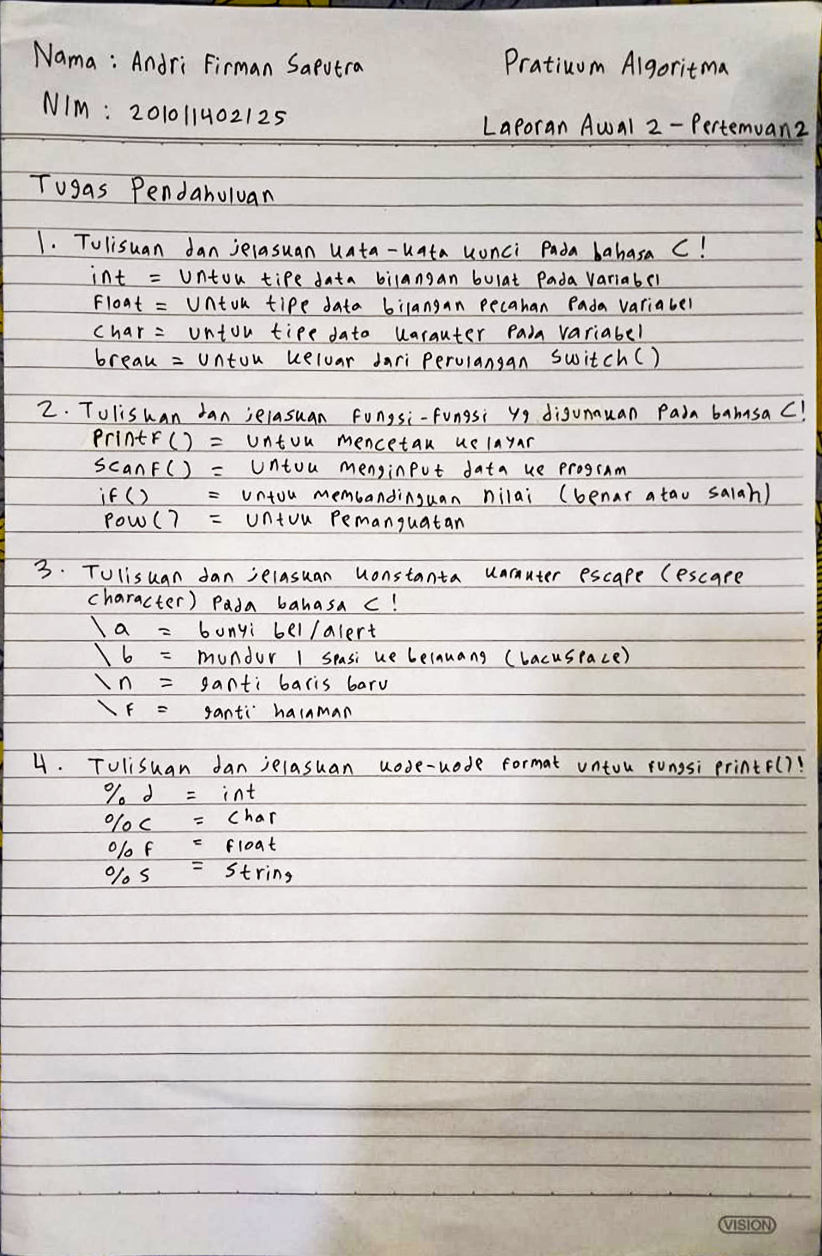 Nama : Andri Firman Saputra
Pratikum Algoritma
NIM : 201011402125
Laporan Awal 2 - Pertemuan 2
Tugas Pendahuluan
1. Tuliskan dan jelaskan kata-kata kunci pada bahasa C!
int = untuk tipe data bilangan bulat pada variabel
Float = untuk tipe data bilangan pecahan pada variabel
char = untuk tipe data karakter pada variabel
break = untuk keluar dari perulangan switch()
2. Tuliskan dan jelaskan fungsi-fungsi yg digunakan pada bahasa C!
printf() = untuk mencetak ke layar
scanf() = untuk menginput data ke program
if() = untuk membandingkan nilai (benar atau salah)
pow() = untuk pemangkatan
3. Tuliskan dan jelaskan konstanta karakter escape (escape
character) pada bahasa C!
\a = bunyi bel/alert
\b = mundur 1 spasi ke belakang (backspace)
\n = ganti baris baru
\f = ganti halaman
4. Tuliskan dan jelaskan kode-kode format untuk fungsi printf()!
%d = int
%c = char
%f = float
%s = string
VISION